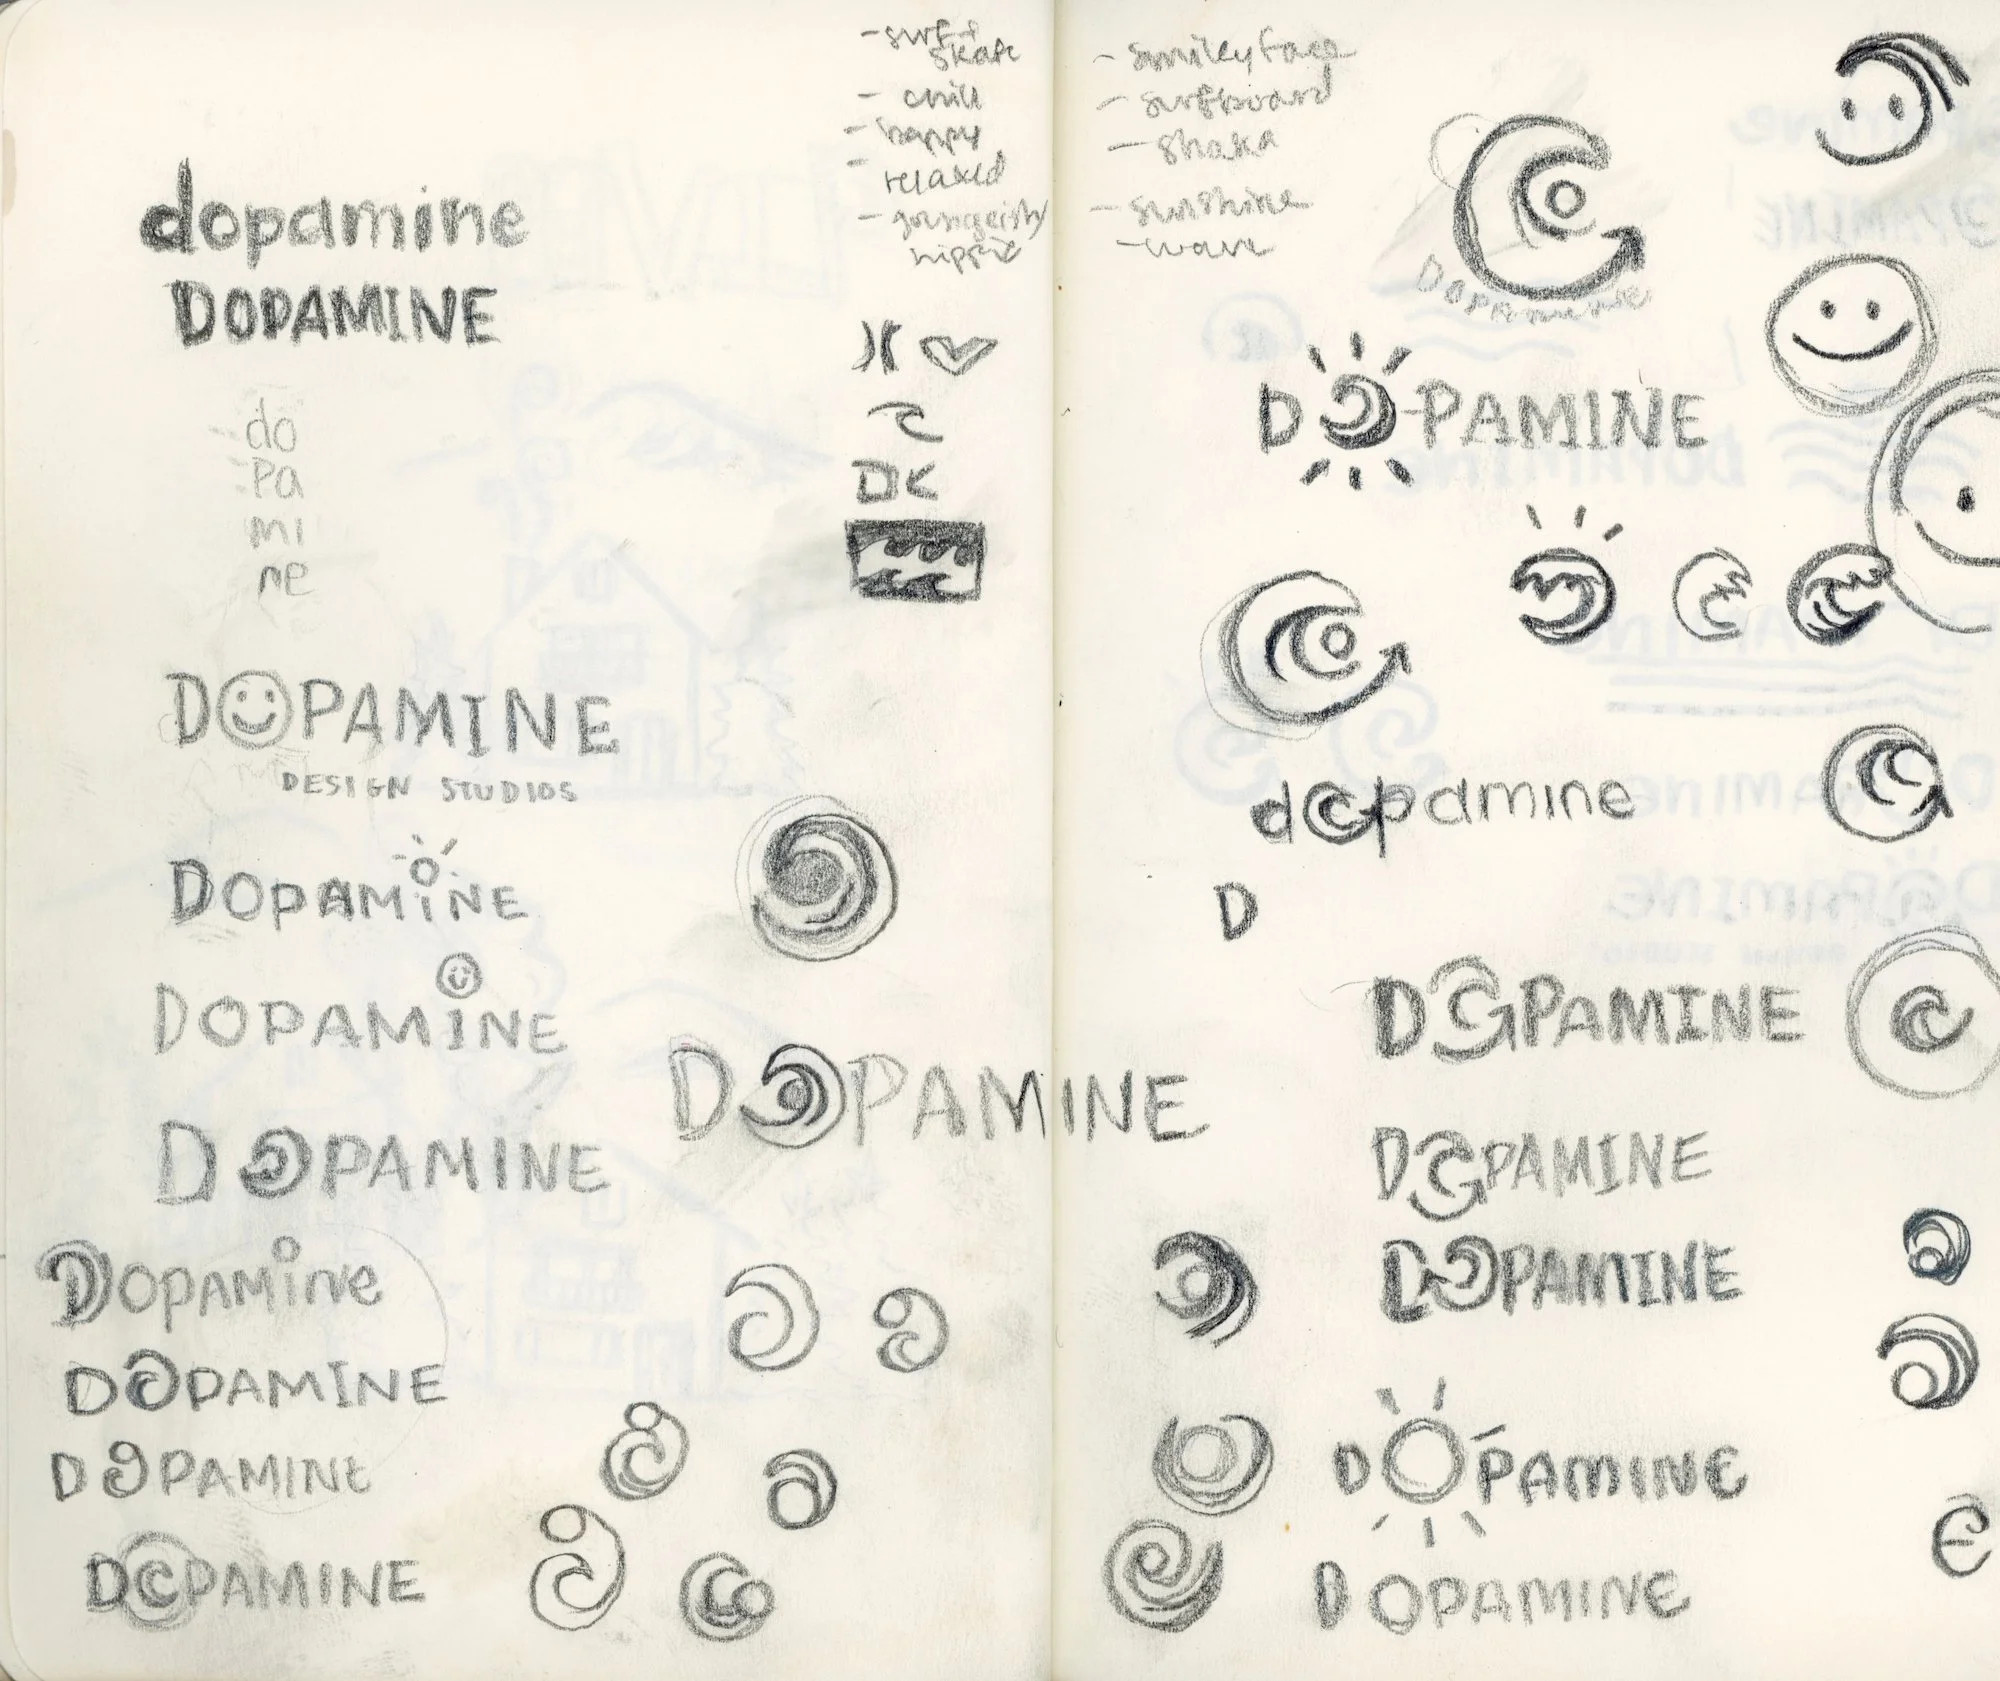 - surf +
skate
- chill
- happy
- relaxed
- youngeish/
hippie
dopamine
DOPAMINE
do
pa
mi
ne
DK
DOPAMINE
DESIGN STUDIOS
DOPAMiNE
DOPAMINE
DOPAMINE
DOPAMINE
DOPAMiNe
DOPAMINE
DOPAMINE
DOPAMINE
- smiley face
- surfboard
- shaka
- sunshine
- wave
DOPAMINE
DOPAMINE
dopamine
D
DOPAMINE
DOPAMINE
DOPAMINE
DOPAMINE
DOPAMINE
e